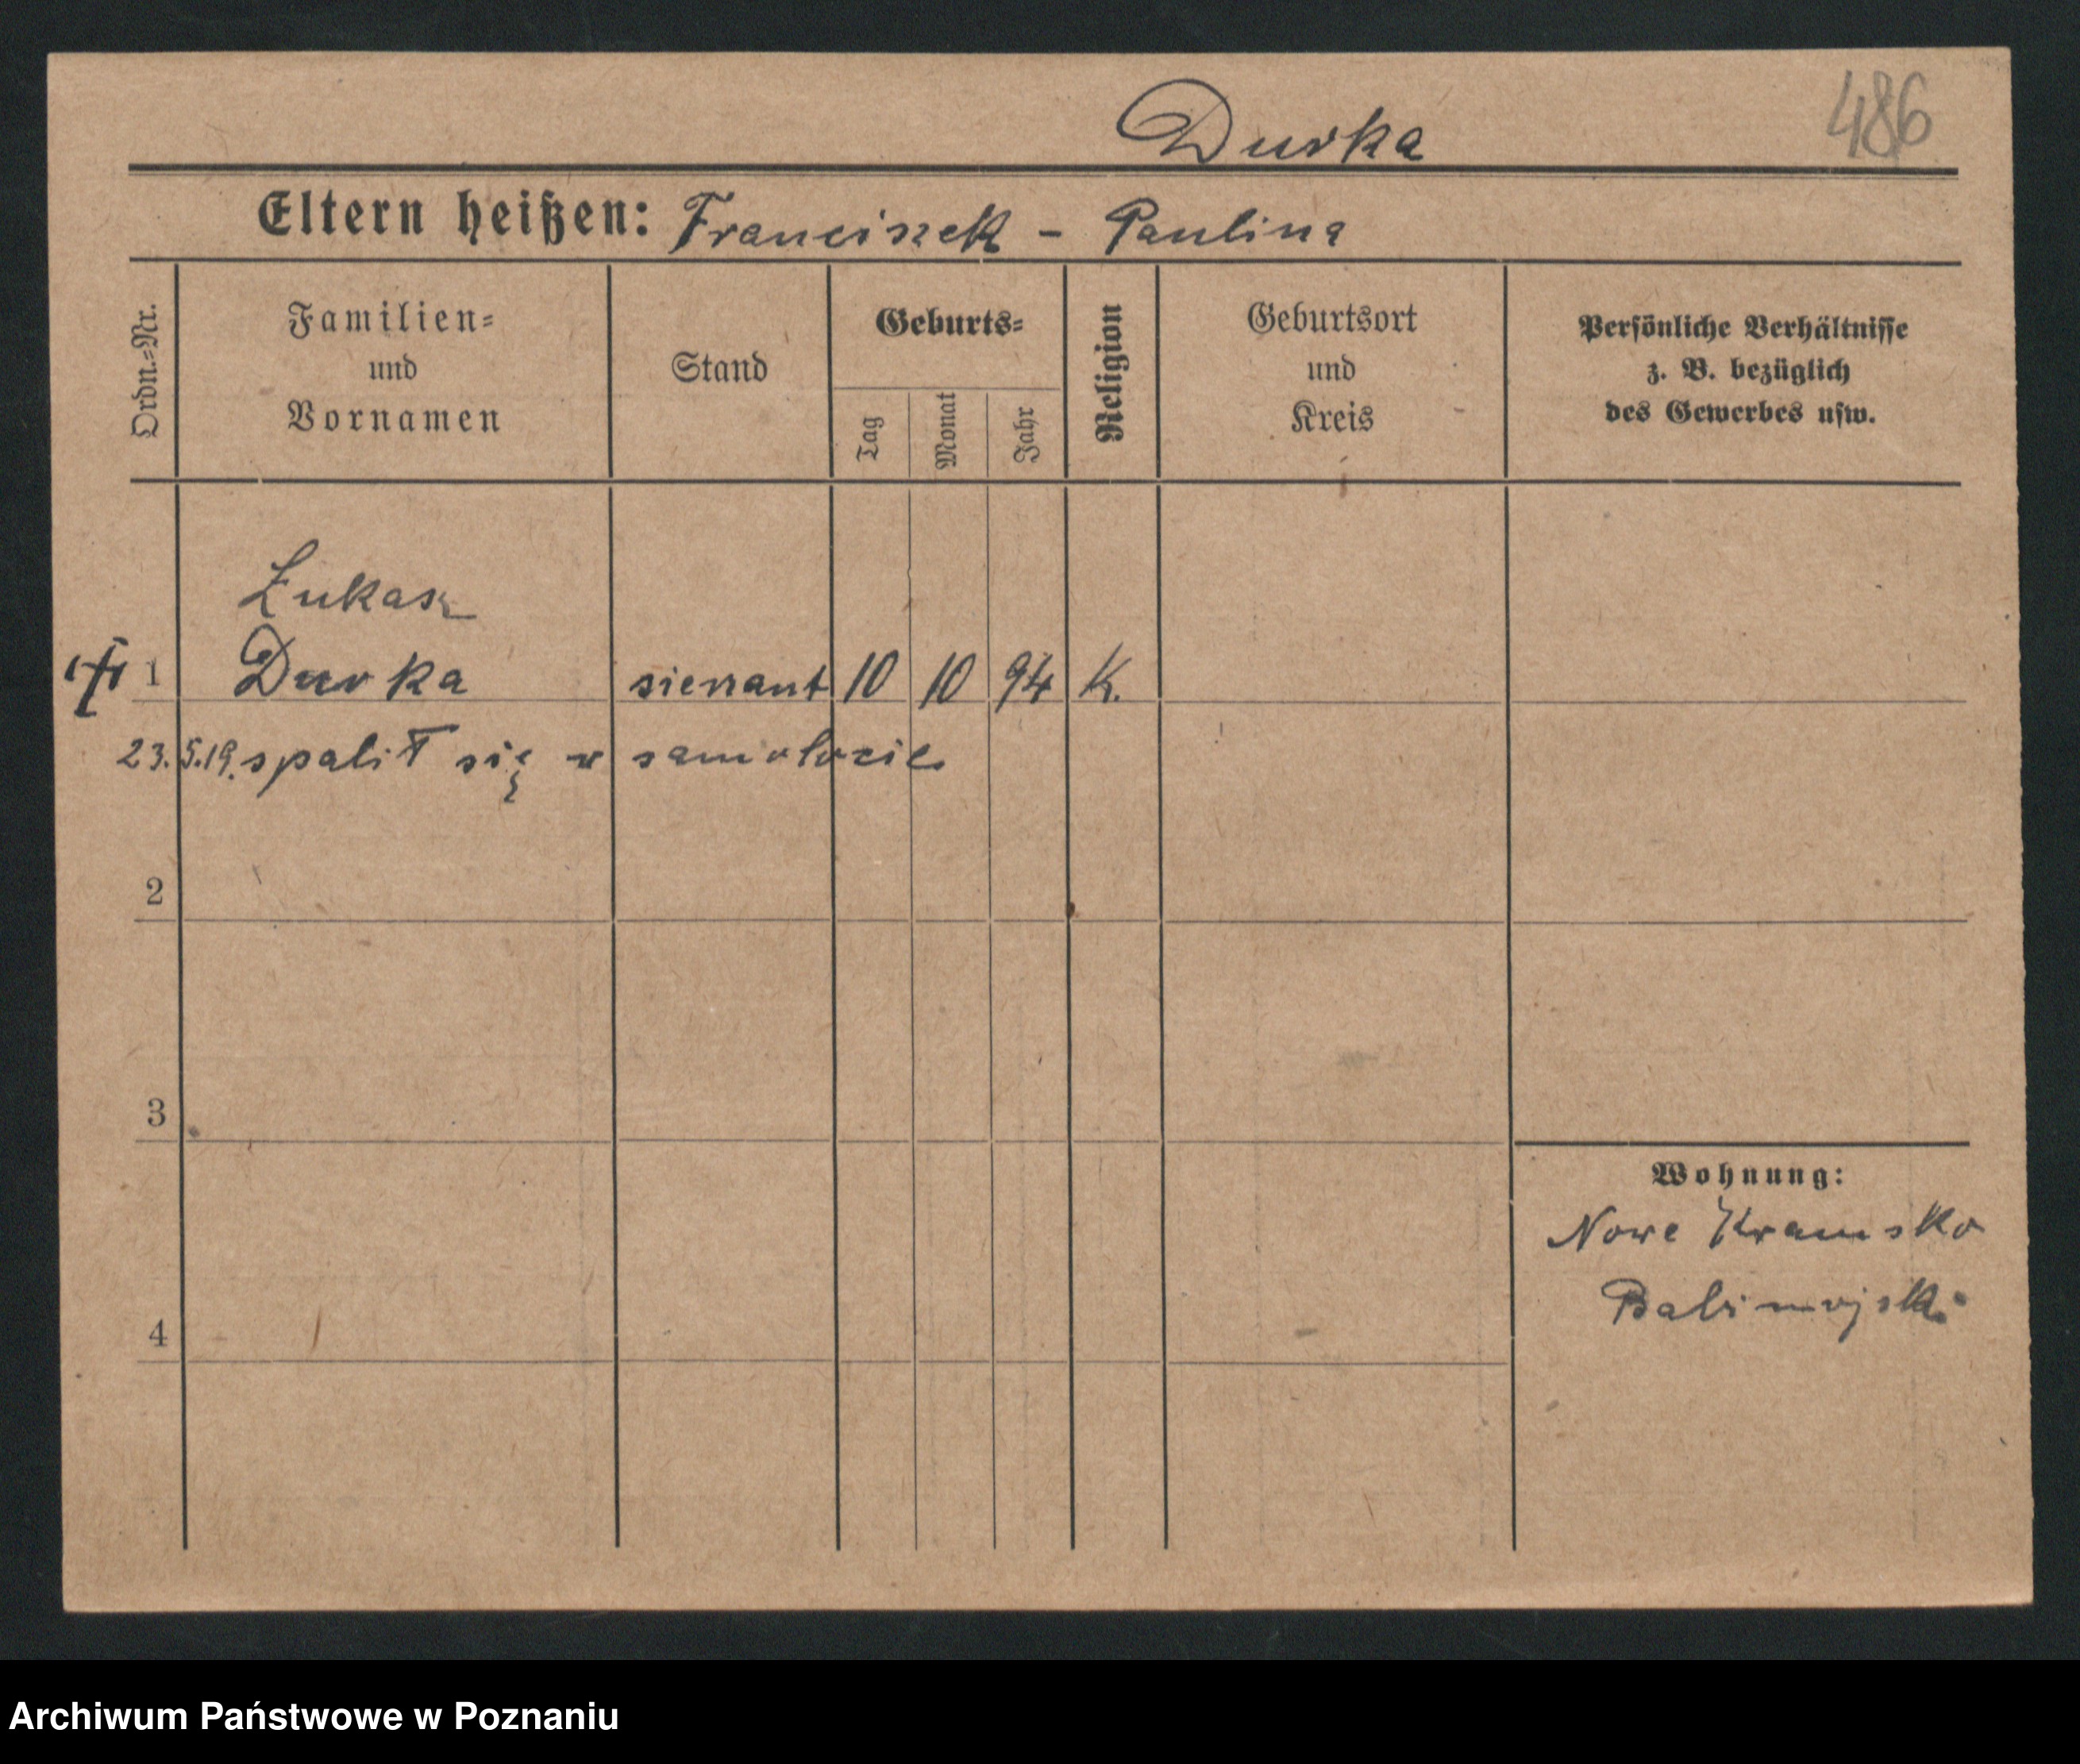 Durka
486
Eltern heißen: Franciszek - Paulina
Ordn.-Nr.
Familien-
und
Vornamen
Stand
Geburts-
Tag
Monat
Jahr
Religion
Geburtsort
und
Kreis
Persönliche Verhältnisse
z. B. bezüglich
des Gewerbes usw.
Łukasz
1 Durka sierzant 10 10 94 K.
23.5.19. spalił się w samolocie
2
3
4
Wohnung:
Nowe Kramsko
Babimojski
Archiwum Państwowe w Poznaniu